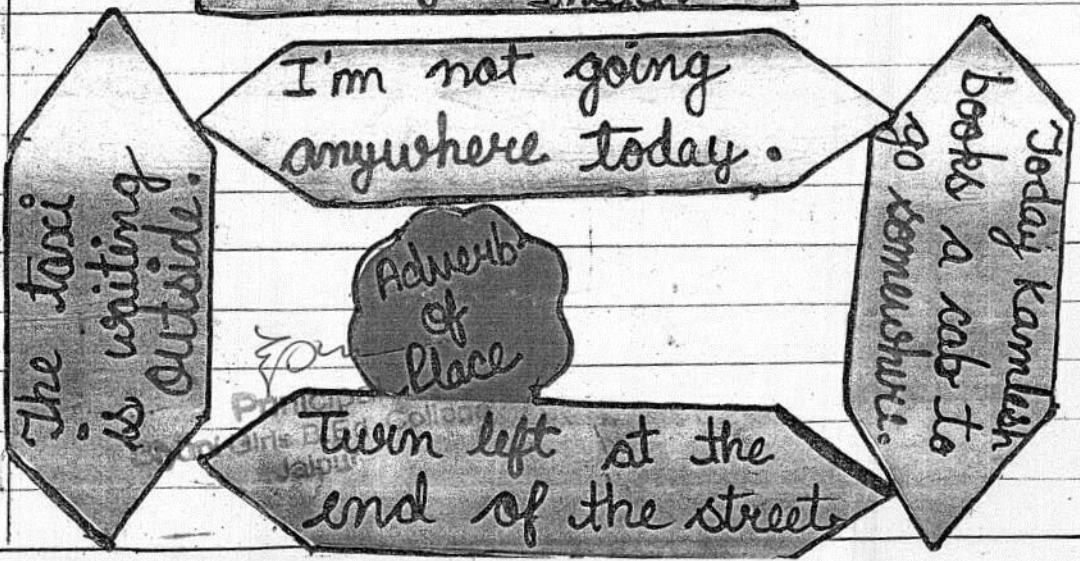 I'm not going
anywhere today.
The taxi
is waiting
outside.
Today Kamlesh
books a cab to
go somewhere.
Adverb
of
Place
Turn left at the
end of the street.
Principal
Girls B.Ed. College
Jaipur